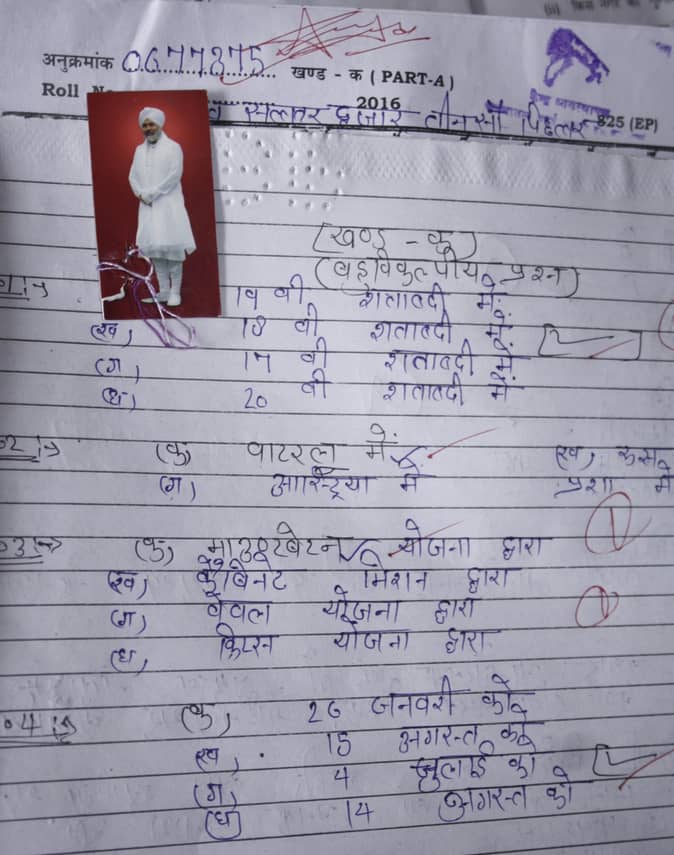 (ii)
अनुक्रमांक 0677375 खण्ड - क ( PART-A )
Roll 2016
सत्तर हजार तीनसौ पिछत्तर 825 (EP)
(खण्ड - क)
(बहुविकल्पीय प्रश्न)
19 वी शताब्दी में
ख) 18 वी शताब्दी में
(ग) 17 वी शताब्दी में
(घ) 20 वी शताब्दी में
(क) वाटरलू में ख)
(ग) आस्ट्रिया में प्रशा में
(क) माउण्टबेटन योजना द्वारा
ख) कैबिनेट मिशन द्वारा
(ग) वेवल योजना द्वारा
(घ) क्रिप्स योजना द्वारा
(क) 26 जनवरी को
ख) 15 अगस्त को
(ग) 4 जुलाई को
(घ) 14 अगस्त को